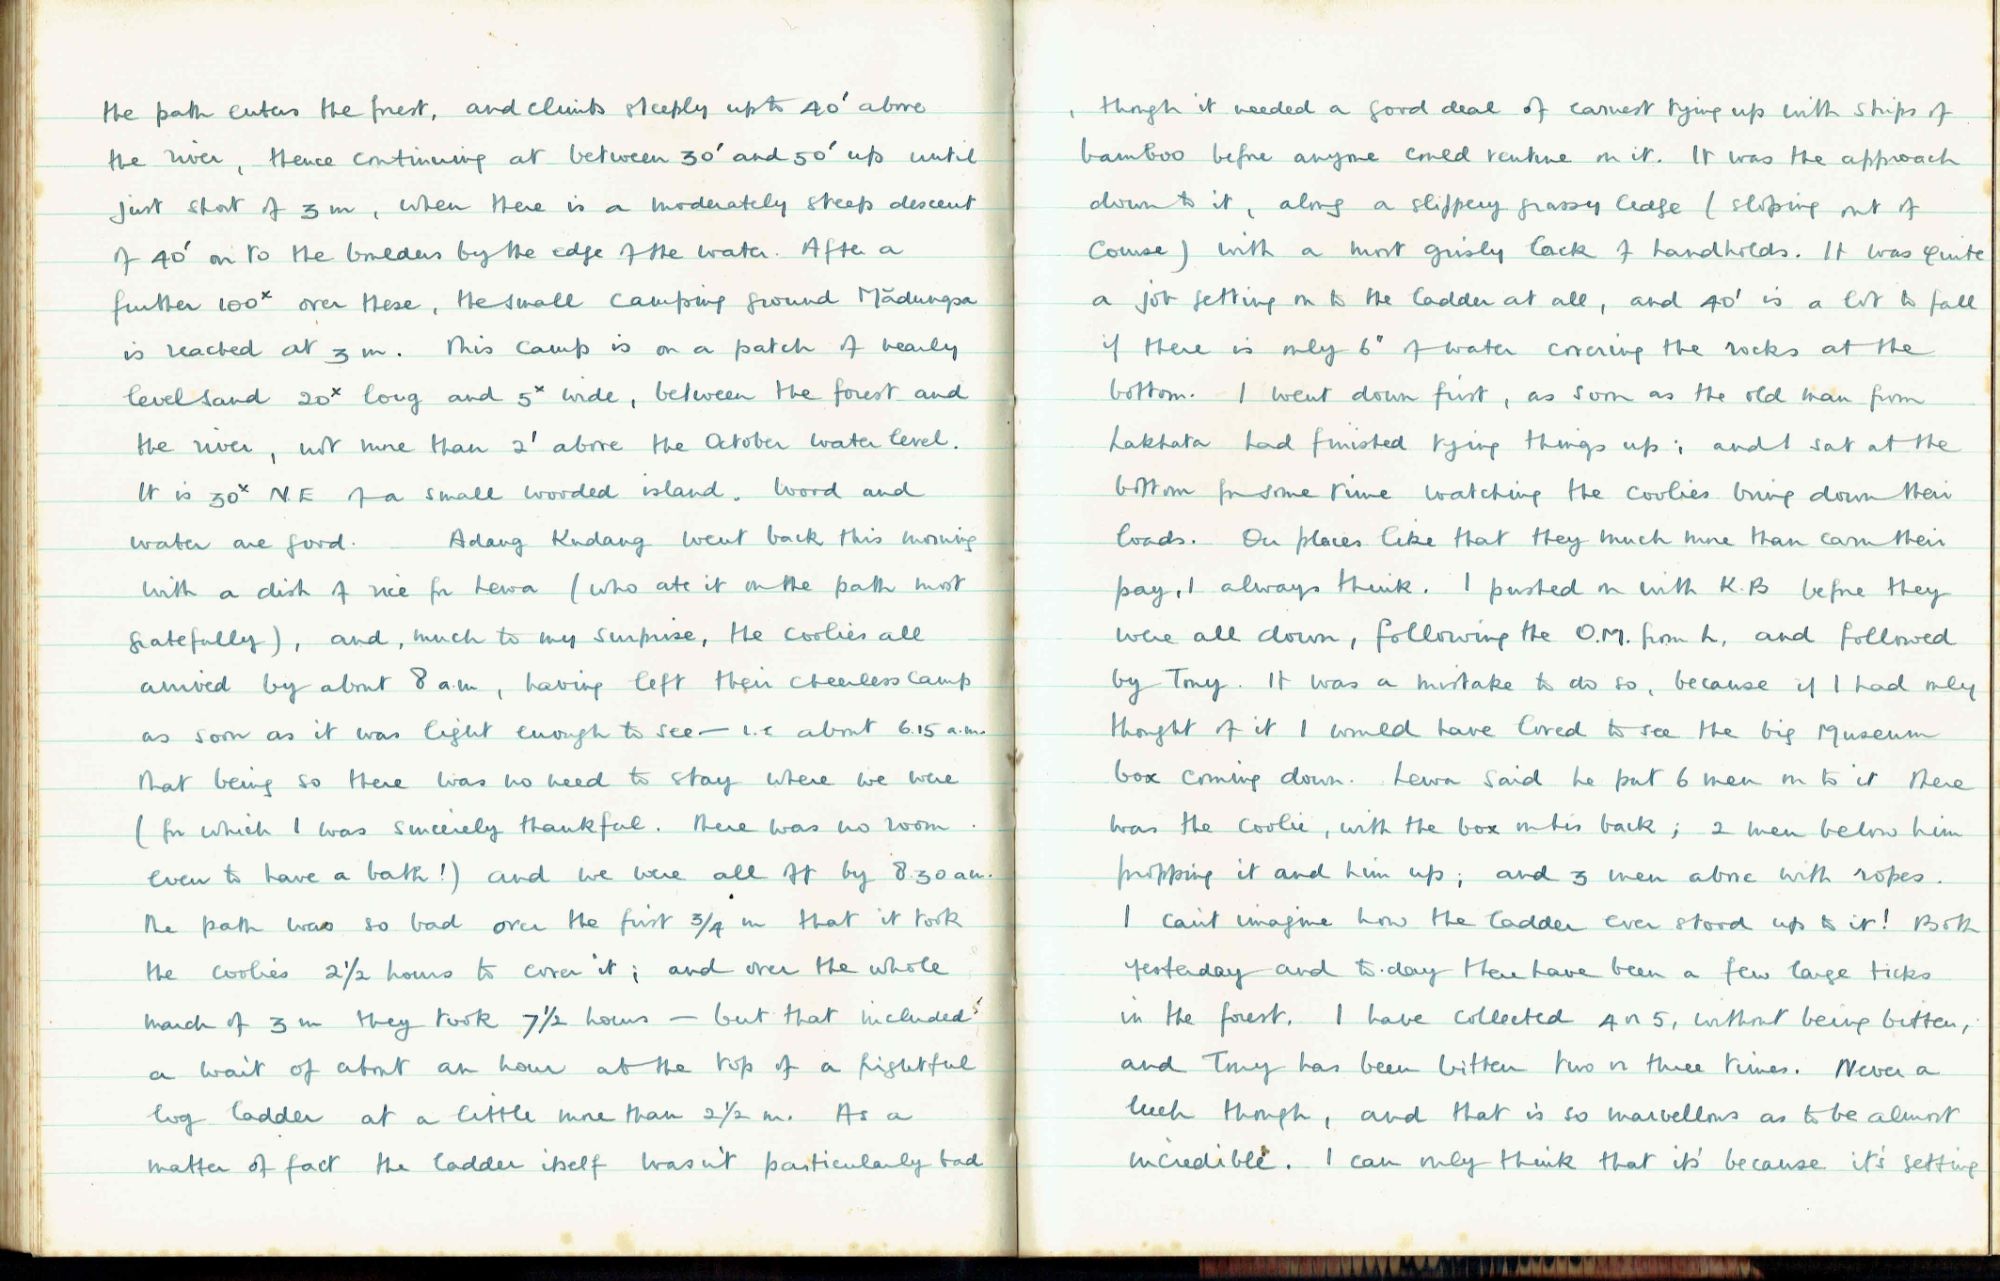 the path enters the forest, and climbs steeply up to 40' above
the river, thence continuing at between 30' and 50' up until
just short of 3 m, when there is a moderately steep descent
of 40' on to the boulders by the edge of the water. After a
further 100ˣ over these, the small camping ground Mādungpa
is reached at 3 m. This camp is on a patch of nearly
level sand 20ˣ long and 5ˣ wide, between the forest and
the river, not more than 2' above the October water level.
It is 30ˣ N.E of a small wooded island. Wood and
water are good. Adang Kudang went back this morning
with a dish of rice for Lewa (who ate it on the path most
gratefully), and, much to my surprise, the coolies all
arrived by about 8 a.m, having left their cheerless camp
as soon as it was light enough to see — i.e about 6.15 a.m.
That being so there was no need to stay where we were
(for which I was sincerely thankful. There was no room
even to have a bath!) and we were all off by 8.30 am.
The path was so bad over the first 3/4 m that it took
the coolies 2 1/2 hours to cover it; and over the whole
march of 3 m they took 7 1/2 hours — but that included
a wait of about an hour at the top of a frightful
log ladder at a little more than 2 1/2 m. As a
matter of fact the ladder itself wasn't particularly bad
, though it needed a good deal of earnest tying up with strips of
bamboo before anyone could venture on it. It was the approach
down to it, along a slippery grassy ledge (sloping out of
course) with a most grisly lack of handholds. It was quite
a job getting on to the ladder at all, and 40' is a lot to fall
if there is only 6" of water covering the rocks at the
bottom. I went down first, as soon as the old man from
Lakhata had finished tying things up; and I sat at the
bottom for some time watching the coolies bring down their
loads. On places like that they much more than earn their
pay, I always think. I pushed on with K.B before they
were all down, following the O.M. from L, and followed
by Tony. It was a mistake to do so, because if I had only
thought of it I would have loved to see the big Museum
box coming down. Lewa said he put 6 men on to it There
was the coolie, with the box on his back; 2 men below him
propping it and him up; and 3 men above with ropes.
I can't imagine how the ladder ever stood up to it! Both
yesterday and to-day there have been a few large ticks
in the forest. I have collected 4 or 5, without being bitten,
and Tony has been bitten two or three times. Never a
leech though, and that is so marvellous as to be almost
incredible. I can only think that it's because it's getting